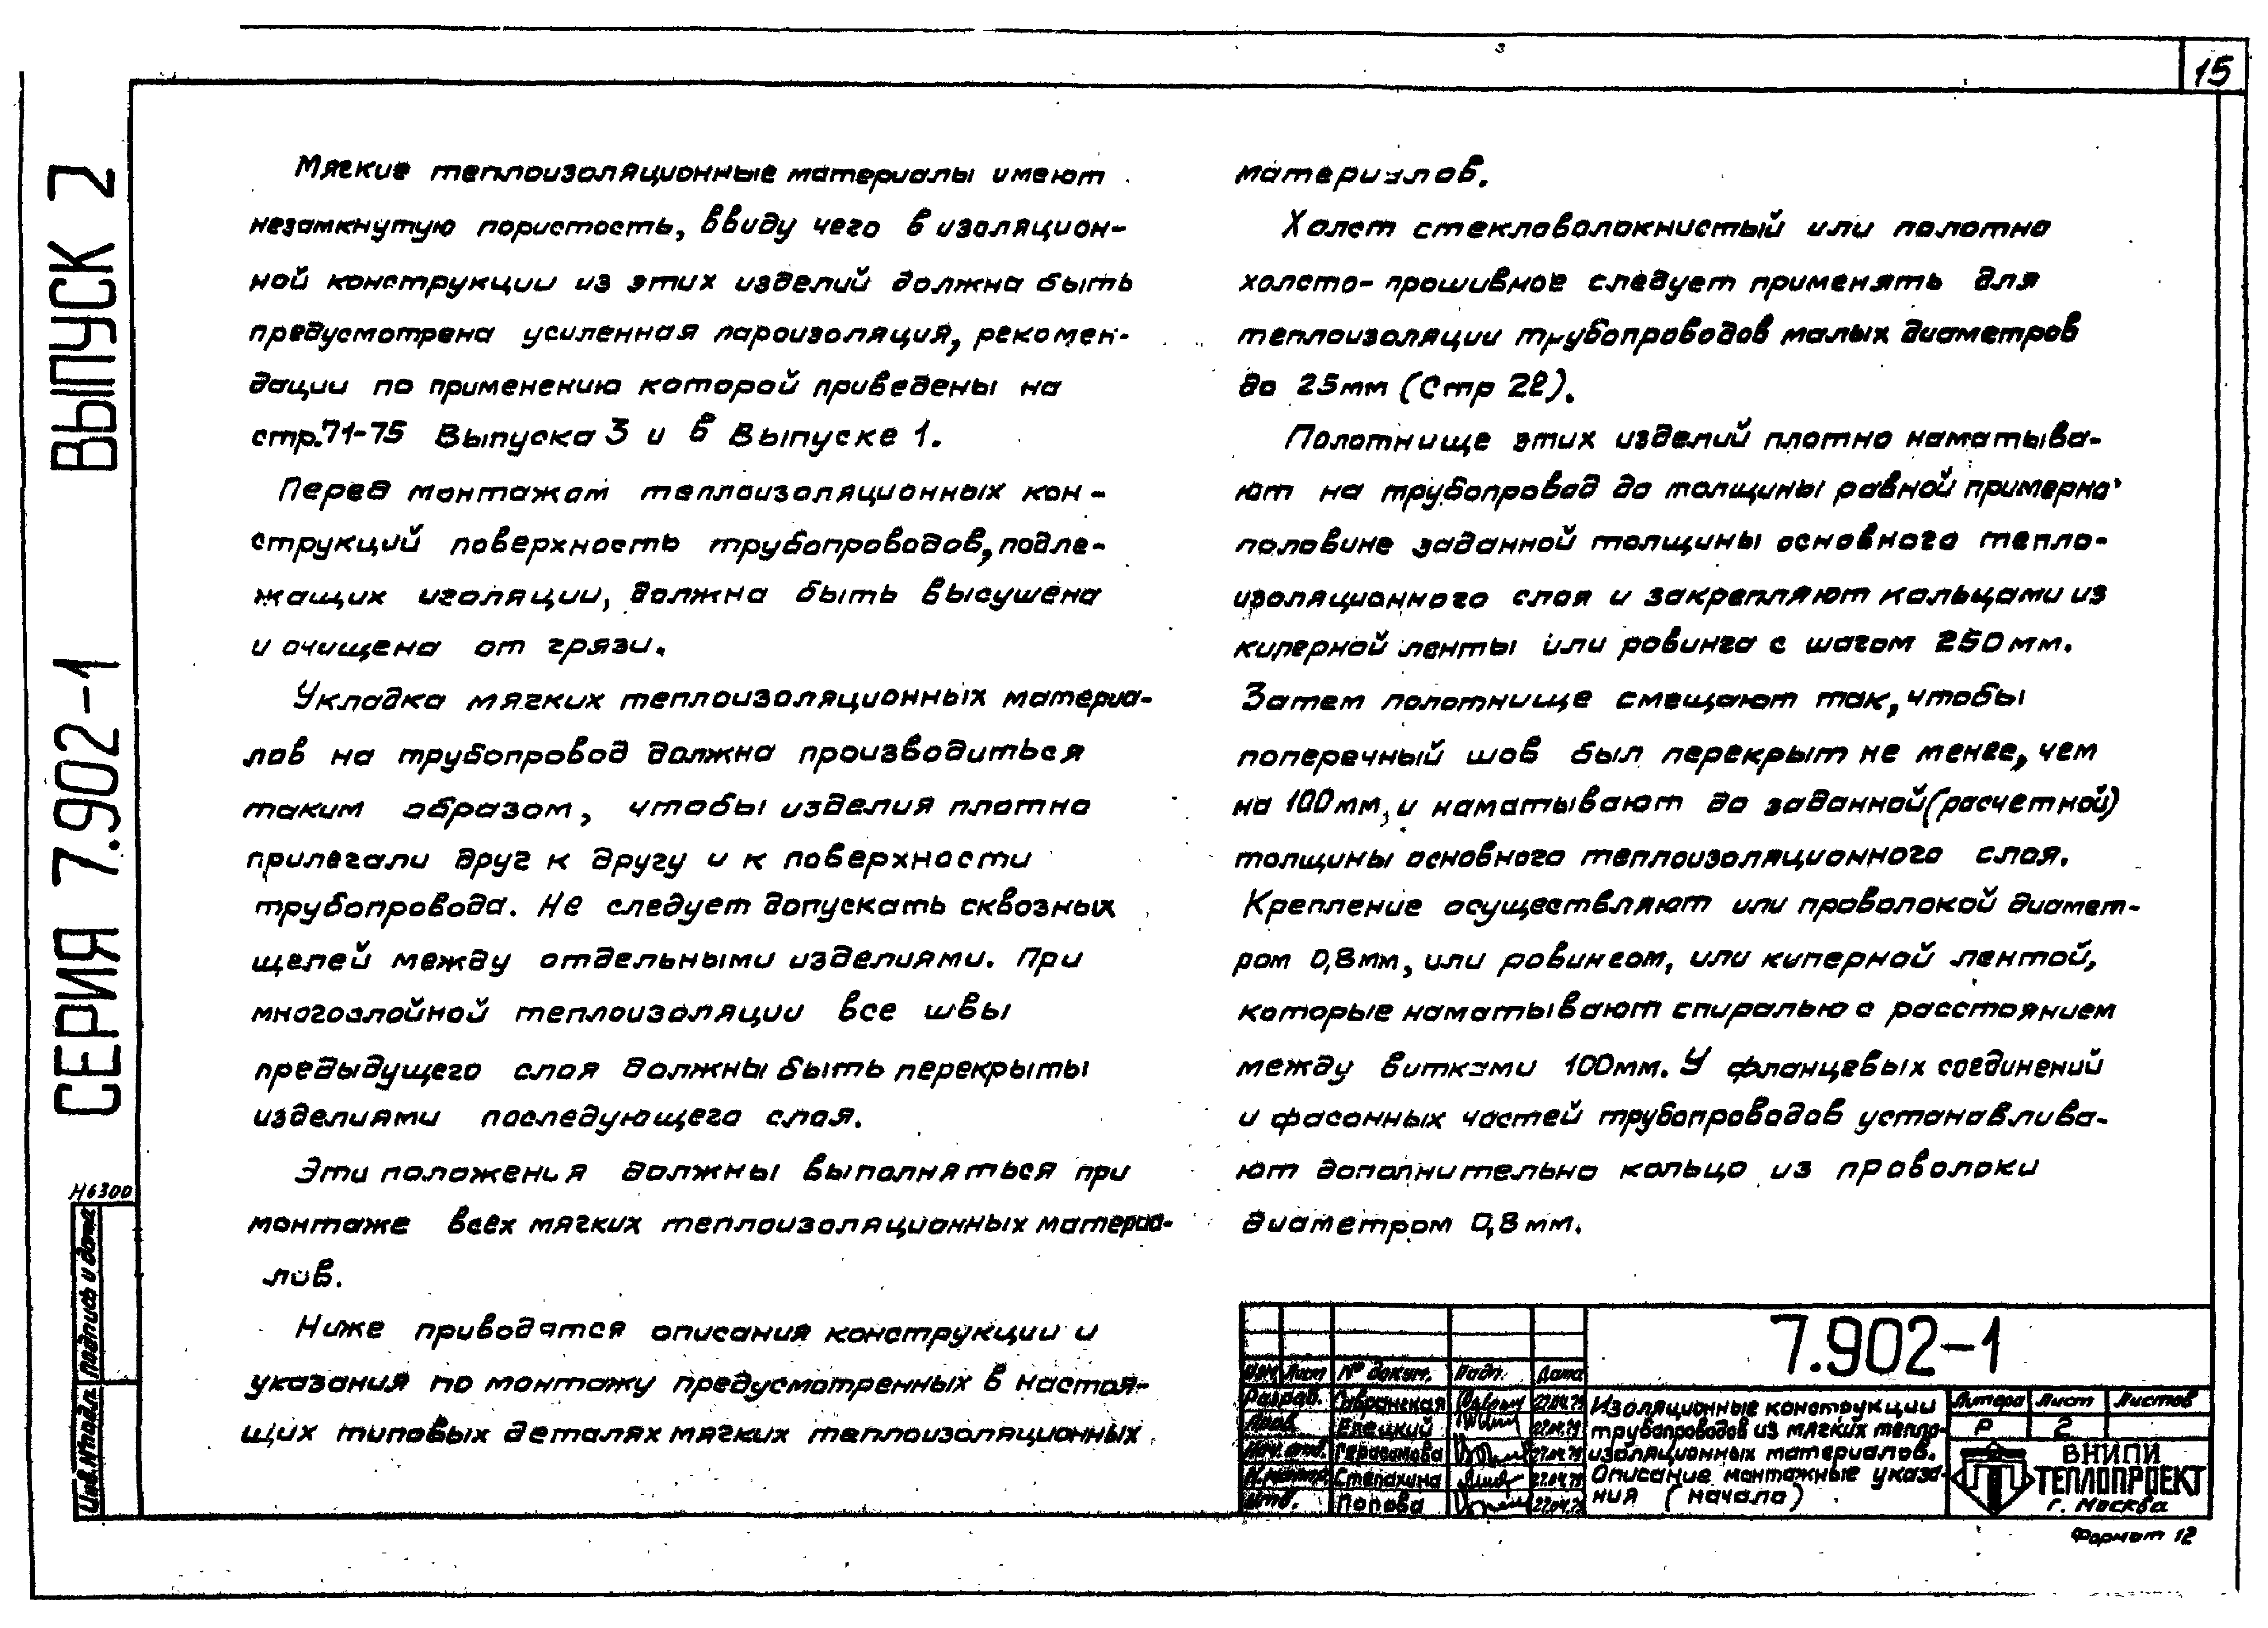 15
СЕРИЯ 7.902-1 ВЫПУСК 2
Мягкие теплоизоляционные материалы имеют
незамкнутую пористость, ввиду чего в изоляцион-
ной конструкции из этих изделий должна быть
предусмотрена усиленная пароизоляция, рекомен-
дации по применению которой приведены на
стр.71-75 Выпуска 3 и в Выпуске 1.
Перед монтажом теплоизоляционных кон-
струкций поверхность трубопроводов, подле-
жащих изоляции, должна быть высушена
и очищена от грязи.
Укладка мягких теплоизоляционных материа-
лов на трубопровод должна производиться
таким образом, чтобы изделия плотно
прилегали друг к другу и к поверхности
трубопровода. Не следует допускать сквозных
щелей между отдельными изделиями. При
многослойной теплоизоляции все швы
предыдущего слоя должны быть перекрыты
изделиями последующего слоя.
Эти положения должны выполняться при
монтаже всех мягких теплоизоляционных материа-
лов.
Ниже приводятся описания конструкции и
указания по монтажу предусмотренных в настоя-
щих типовых деталях мягких теплоизоляционных
материалов.
Холст стекловолокнистый или полотно
холсто-прошивное следует применять для
теплоизоляции трубопроводов малых диаметров
до 25мм (Стр 22).
Полотнище этих изделий плотно наматыва-
ют на трубопровод до толщины равной примерно
половине заданной толщины основного тепло-
изоляционного слоя и закрепляют кольцами из
киперной ленты или ровинга с шагом 250мм.
Затем полотнище смещают так, чтобы
поперечный шов был перекрыт не менее, чем
на 100мм, и наматывают до заданной (расчетной)
толщины основного теплоизоляционного слоя.
Крепление осуществляют или проволокой диамет-
ром 0,8мм, или ровингом, или киперной лентой,
которые наматывают спиралью с расстоянием
между витками 100мм. У фланцевых соединений
и фасонных частей трубопроводов устанавлива-
ют дополнительно кольцо из проволоки
диаметром 0,8мм.
Н6300
Инв.№подл. Подпись и дата
7.902-1
Изм Лист № докум. Подп. Дата
Разраб. Савранская 27.04.79
Елецкий 27.04.79
Нач. отд. Герасимова 27.04.79
Н.контр. Степакина 27.04.79
Утв. Попова 27.04.79
Изоляционные конструкции
трубопроводов из мягких тепло-
изоляционных материалов.
Описание монтажные указа-
ния (начало)
Литера Лист Листов
Р 2
ВНИПИ
ТЕПЛОПРОЕКТ
г. Москва
Формат 12